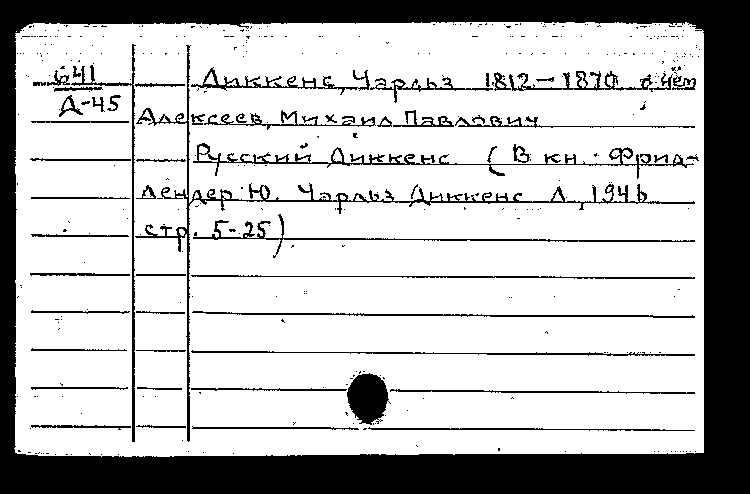 641 Диккенс, Чарльз 1812-1870 о нём
Д-45
Алексеев, Михаил Павлович
Русский Диккенс. (В кн. Фрид-
лендер Ю. Чарльз Диккенс Л., 1946
стр. 5-25)